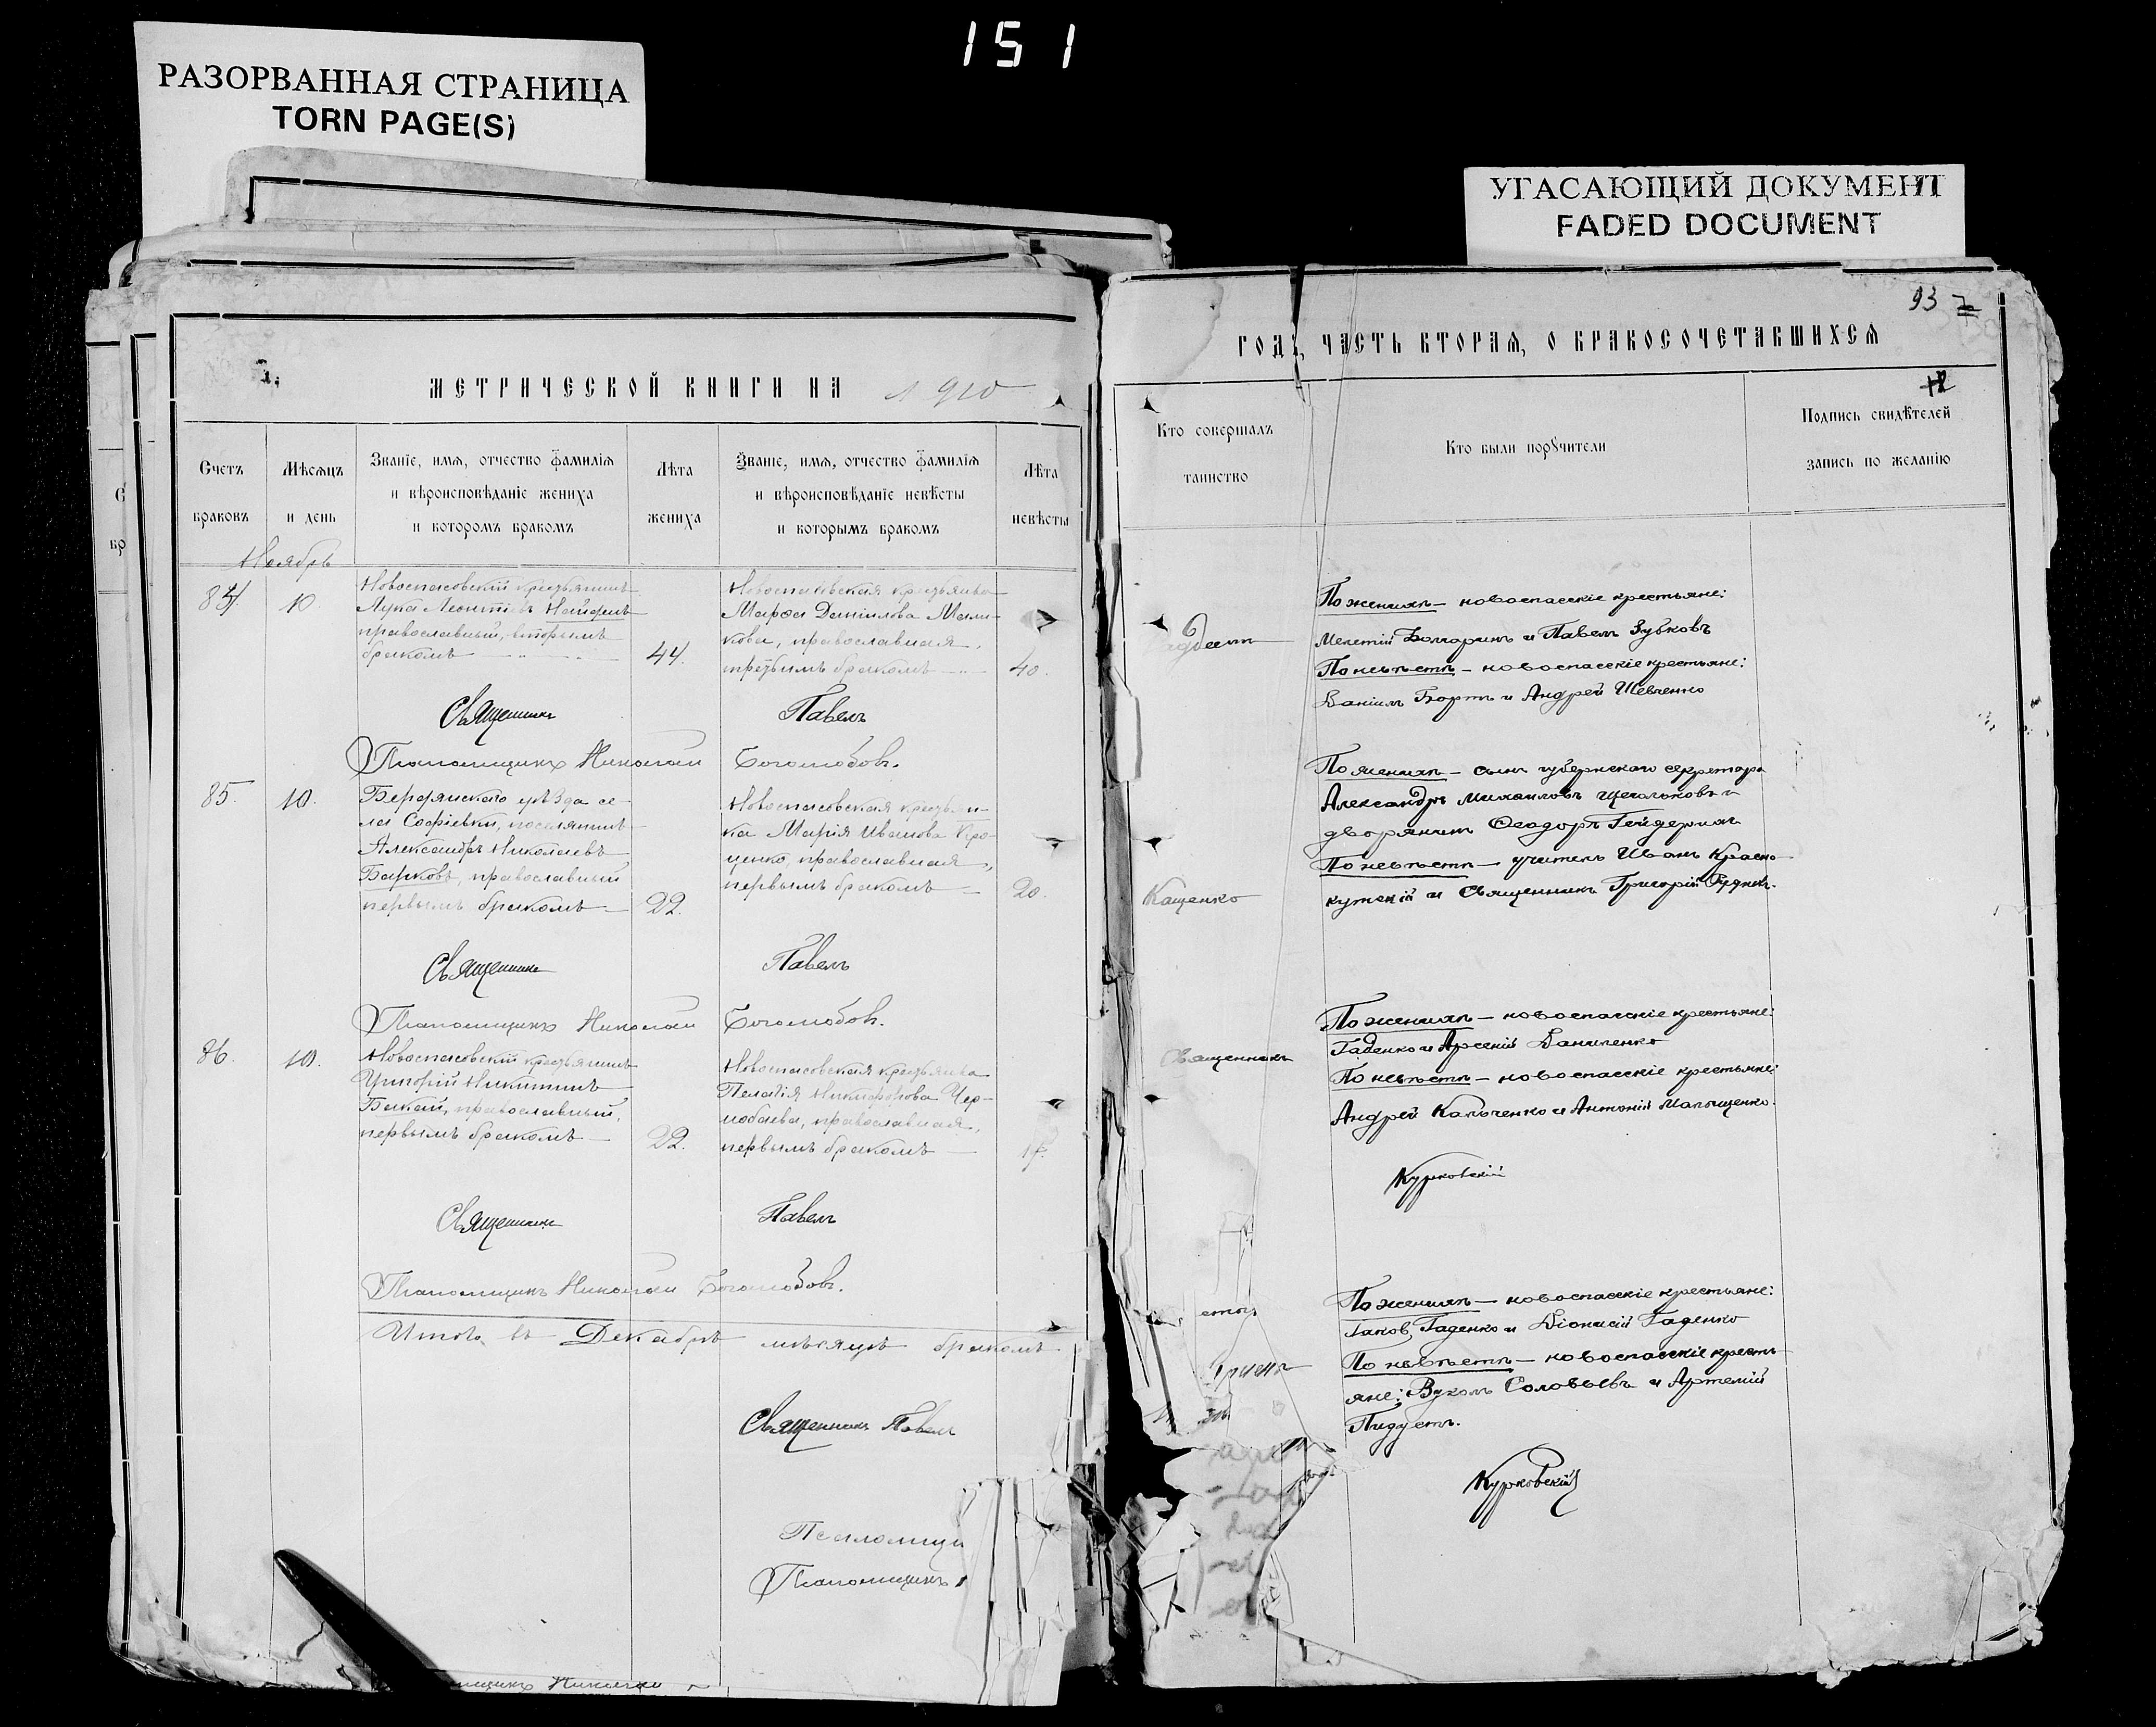 151
РАЗОРВАННАЯ СТРАНИЦА
TORN PAGE(S)
УГАСАЮЩИЙ ДОКУМЕНТ
FADED DOCUMENT
МЕТРИЧЕСКОЙ КНИГИ НА 1910
Счетъ браковъ
Мѣсяцъ и день
Званіе, имя, отчество фамилія
и вѣроисповѣданіе жениха
и которомъ бракомъ
Лѣта жениха
Званіе, имя, отчество фамилія
и вѣроисповѣданіе невѣсты
и которымъ бракомъ
Лѣта невѣсты
Ноябрь
84
10
Новоспасовскій крестьянинъ
Лука Леонтіевъ
православный, вторымъ
бракомъ
44.
Новоспасовская крестьянка
Марѳа Даніилова Мали-
кова, православная,
третьимъ бракомъ
40.
Священникъ Павелъ
Псаломщикъ Николай Боголюбовъ.
85.
10.
Бердянскаго уѣзда се-
ла Софіевки, поселянинъ
Александръ Николаевъ
Барковъ, православный
первымъ бракомъ
22.
Новоспасовская крестьян-
ка Марія Иванова Кро-
ценко, православная,
первымъ бракомъ
20.
Священникъ Павелъ
Псаломщикъ Николай Боголюбовъ.
86.
10.
Новоспасовскій крестьянинъ
Григорій Никитинъ
Бакай, православный,
первымъ бракомъ
22.
Новоспасовская крестьянка
Пелагія Никифорова Чер-
нобаева, православная,
первымъ бракомъ
Священникъ Павелъ
Псаломщикъ Николай Боголюбовъ.
Итого въ Декабрѣ мѣсяцѣ бракомъ
Священникъ Павелъ
Псаломщи
Псаломщикъ
93
ГОДЪ, ЧАСТЬ ВТОРАЯ, О БРАКОСОЧЕТАВШИХСЯ
Кто совершалъ
таинство
Кто были порꙋчители
Подпись свидѣтелей
запись по желанію
По женихѣ — новоспасскіе крестьяне:
Мелетій Болгаринъ и Павелъ Зубковъ
По невѣстѣ — новоспасскіе крестьяне:
Даніилъ Бортъ и Андрей Шевченко
По женихѣ — сынъ губернскаго секретаря
Александръ Михаиловъ Щегольковъ и
дворянинъ Ѳеодоръ Гейдерихъ
По невѣстѣ — учитель Иванъ Красно-
кутскій и Священникъ Григорій
Кащенко
Священникъ
По женихѣ — новоспасскіе крестьяне:
Гаденко и Арсеній Даниленко
По невѣстѣ — новоспасскіе крестьяне:
Андрей Калюченко и Антоній Малыщенко.
Курковскій
По женихѣ — новоспасскіе крестьяне:
Іаковъ Гаденко и Діонисій Гаденко
По невѣстѣ — новоспасскіе кресть-
яне: Вуколъ Соловьевъ и Артемій
Пидустъ.
Курковскій